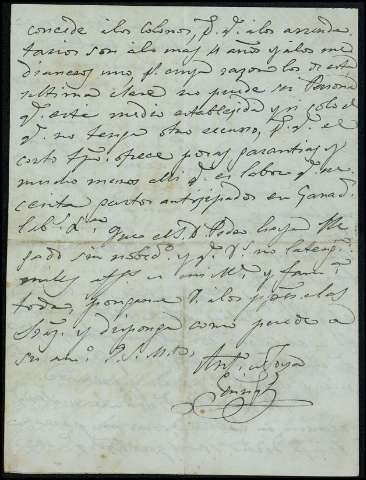 concede á los Colonos, p.r q.e á los arrenda
tarios son á lo mas 4 años y á los me
dianeros uno, p.r cuya razon los de esta
ultima clase no puede ser Persona
q.e esté medio establecida y si solo el
q.e no tenga otro recurso, p.r q.e el
corto tpo. ofrece pocas garantias y
mucho menos alli q.e es labor q.e ne
cesita gastos anticipados en Ganad.
Que el S.r D. Pedro haya lle
gado sin nobed.d y q.e V. no la tenga
mil af.s a mi M.e y fam.a
toda, pongame V. á los pies de las
Sras. y disponga como puede a
su am.o Q. S. M. B.
Ant.o de Goya
Enriq.z